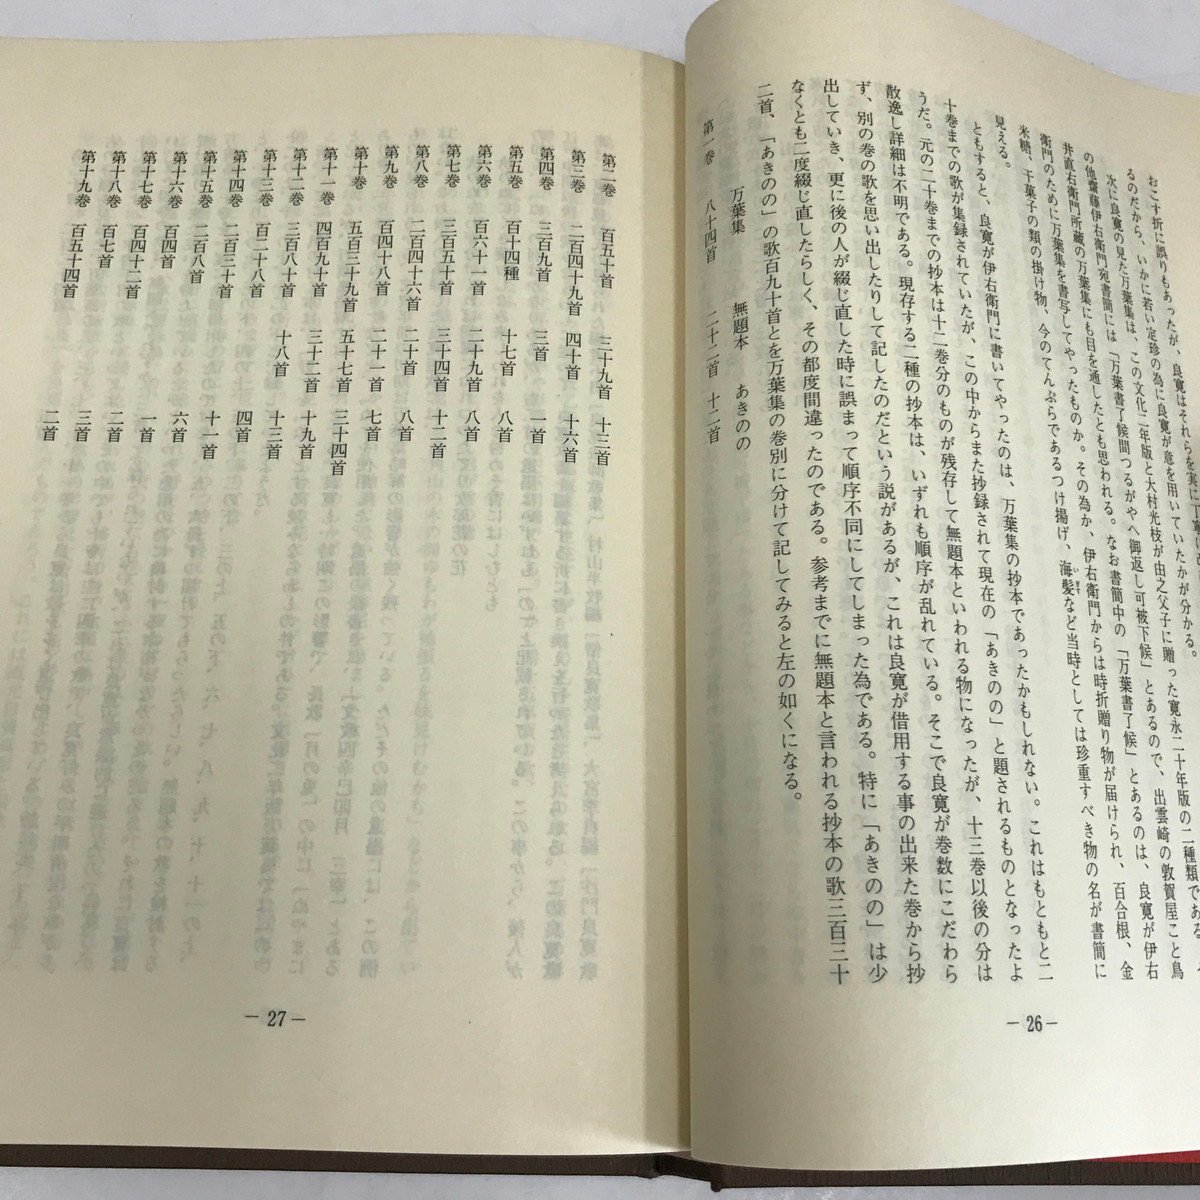 おこす折に誤りもあったが、良寛はそれらを実に
るのだから、いかに若い定珍の為に良寛が意を用いていたかが分かる。
次に良寛の見た万葉集は、この文化二年版と大村光枝が由之父子に贈った寛永二十年版の二種類である。
の他齋藤伊右衛門宛書簡には「万葉書了候間つるがやへ御返し可被下候」とあるので、出雲崎の敦賀屋こと鳥
井直右衛門所蔵の万葉集にも目を通したとも思われる。なお書簡中の「万葉書了候」とあるのは、良寛が伊右
衛門のために万葉集を書写してやったものか。その為か、伊右衛門からは時折贈り物が届けられ、百合根、金
米糖、干菓子の類の掛け物、今のてんぷらであるつけ揚げ、海髪など当時としては珍重すべき物の名が書簡に
見える。
ともすると、良寛が伊右衛門に書いてやったのは、万葉集の抄本であったかもしれない。これはもともと二
十巻までの歌が集録されていたが、この中からまた抄録されて現在の「あきのの」と題されるものとなったよ
うだ。元の二十巻までの抄本は十二巻分のものが残存して無題本といわれる物になったが、十三巻以後の分は
散逸し詳細は不明である。現存する二種の抄本は、いずれも順序が乱れている。そこで良寛が巻数にこだわら
ず、別の巻の歌を思い出したりして記したのだという説があるが、これは良寛が借用する事の出来た巻から抄
出していき、更に後の人が綴じ直した時に誤まって順序不同にしてしまった為である。特に「あきのの」は少
なくとも二度綴じ直したらしく、その都度間違ったのである。参考までに無題本と言われる抄本の歌三百三十
二首、「あきのの」の歌百九十首とを万葉集の巻別に分けて記してみると左の如くになる。
万葉集 無題本 あきのの
第一巻 八十四首 二十二首 十二首
－26－
第二巻 百五十首 三十九首 十三首
第三巻 二百四十九首 四十首 十六首
第四巻 三百九首 三首 一首
第五巻 百十四種 十七首 八首
第六巻 百六十一首 二十九首 八首
第七巻 三百五十首 三十四首 十二首
第八巻 二百四十六首 二十首 八首
第九巻 百四十八首 二十一首 七首
第十巻 五百三十九首 五十七首 三十四首
第十一巻 四百九十首 三十二首 十九首
第十二巻 三百八十首 十八首 十三首
第十三巻 百二十八首 四首
第十四巻 二百三十首 十一首
第十五巻 二百八首 六首
第十六巻 百四首 一首
第十七巻 百四十二首 二首
第十八巻 百七首 三首
第十九巻 百五十四首 二首
－27－